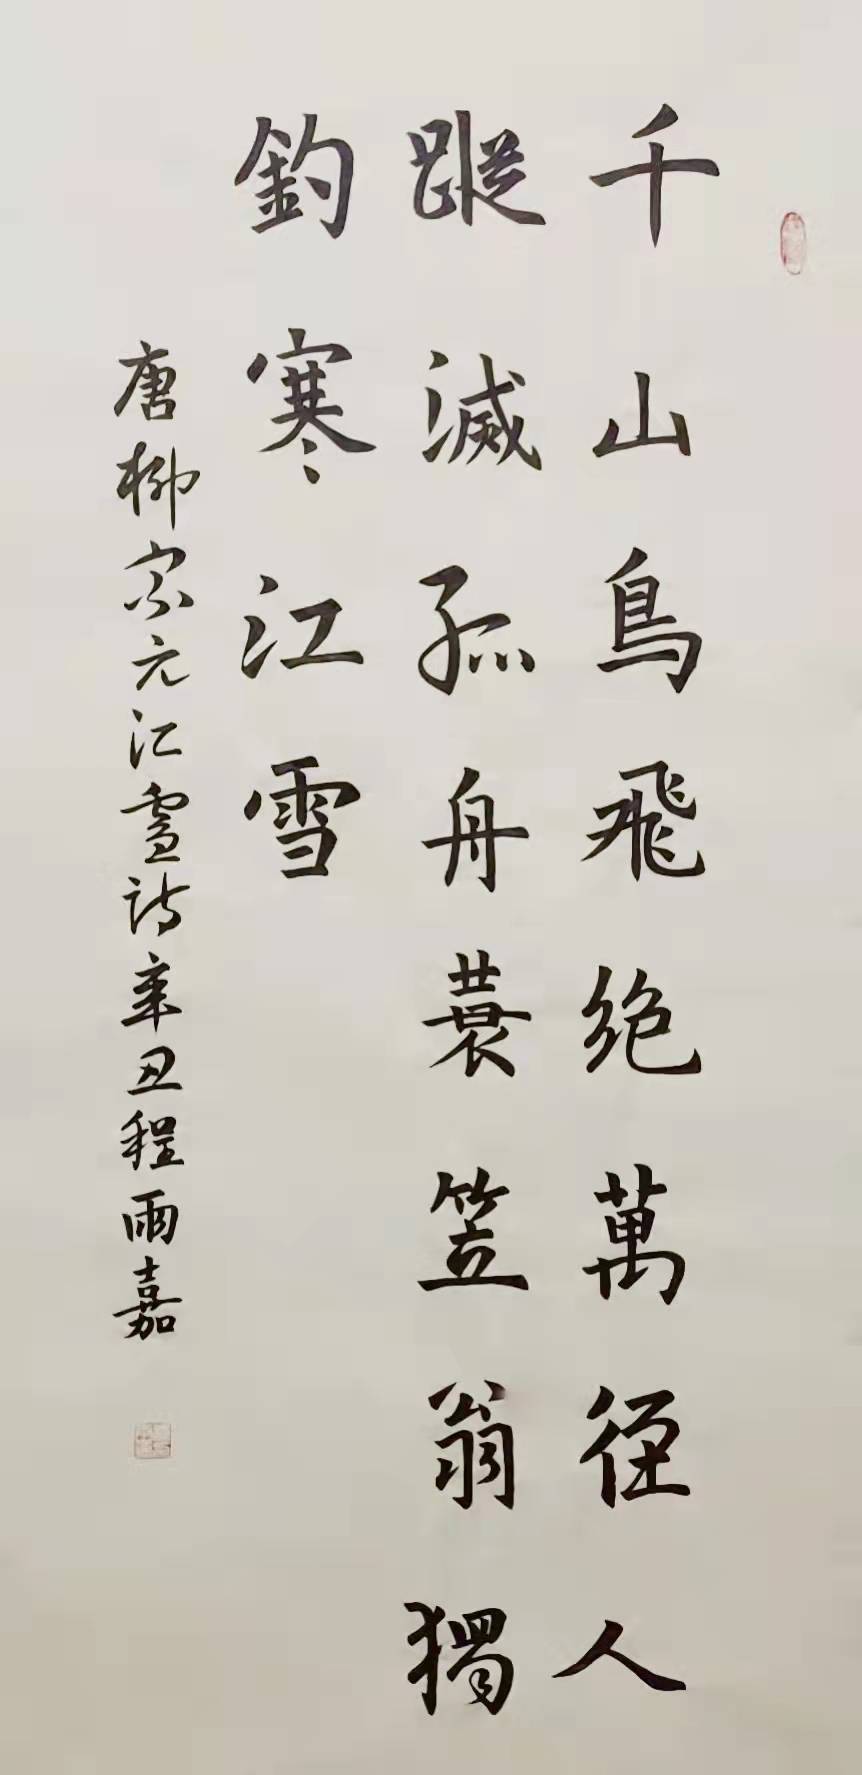 千山鳥飛絶萬徑人
蹤滅孤舟蓑笠翁獨
釣寒江雪
唐柳宗元江雪詩辛丑程雨嘉